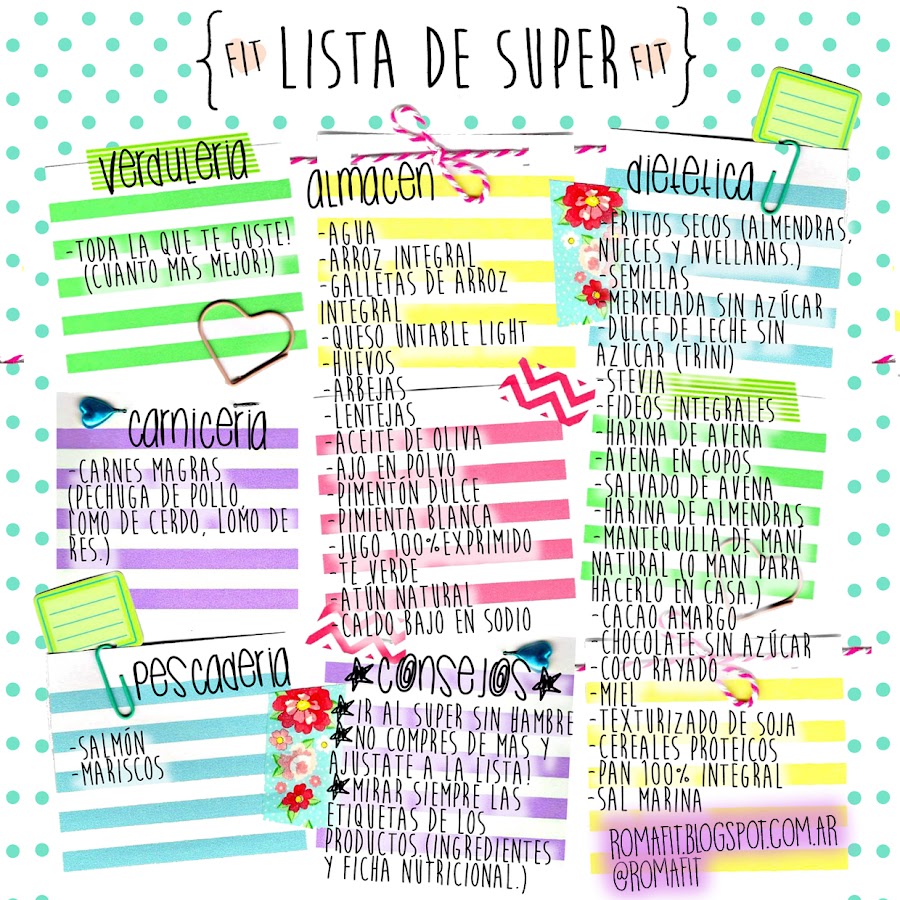 {FIT LISTA DE SUPER FIT}
VERDULERIA
-TODA LA QUE TE GUSTE!
(CUANTO MAS MEJOR!)
CARNICERÍA
-CARNES MAGRAS
(PECHUGA DE POLLO,
LOMO DE CERDO, LOMO DE
RES.)
PESCADERIA
-SALMÓN
-MARISCOS
ALMACEN
-AGUA
-ARROZ INTEGRAL
-GALLETAS DE ARROZ
INTEGRAL
-QUESO UNTABLE LIGHT
-HUEVOS
-ARBEJAS
-LENTEJAS
-ACEITE DE OLIVA
-AJO EN POLVO
-PIMENTÓN DULCE
-PIMIENTA BLANCA
-JUGO 100% EXPRIMIDO
-TÉ VERDE
-ATÚN NATURAL
-CALDO BAJO EN SODIO
★CONSEJOS★
★IR AL SUPER SIN HAMBRE
★NO COMPRES DE MAS Y
AJUSTATE A LA LISTA!
★MIRAR SIEMPRE LAS
ETIQUETAS DE LOS
PRODUCTOS (INGREDIENTES
Y FICHA NUTRICIONAL.)
DIETETICA
-FRUTOS SECOS (ALMENDRAS,
NUECES Y AVELLANAS.)
-SEMILLAS
-MERMELADA SIN AZÚCAR
-DULCE DE LECHE SIN
AZÚCAR (TRINI)
-STEVIA
-FIDEOS INTEGRALES
-HARINA DE AVENA
-AVENA EN COPOS
-SALVADO DE AVENA
-HARINA DE ALMENDRAS
-MANTEQUILLA DE MANÍ
NATURAL (O MANÍ PARA
HACERLO EN CASA.)
-CACAO AMARGO
-CHOCOLATE SIN AZÚCAR
-COCO RAYADO
-MIEL
-TEXTURIZADO DE SOJA
-CEREALES PROTEICOS
-PAN 100% INTEGRAL
-SAL MARINA
ROMAFIT.BLOGSPOT.COM.AR
@ROMAFIT